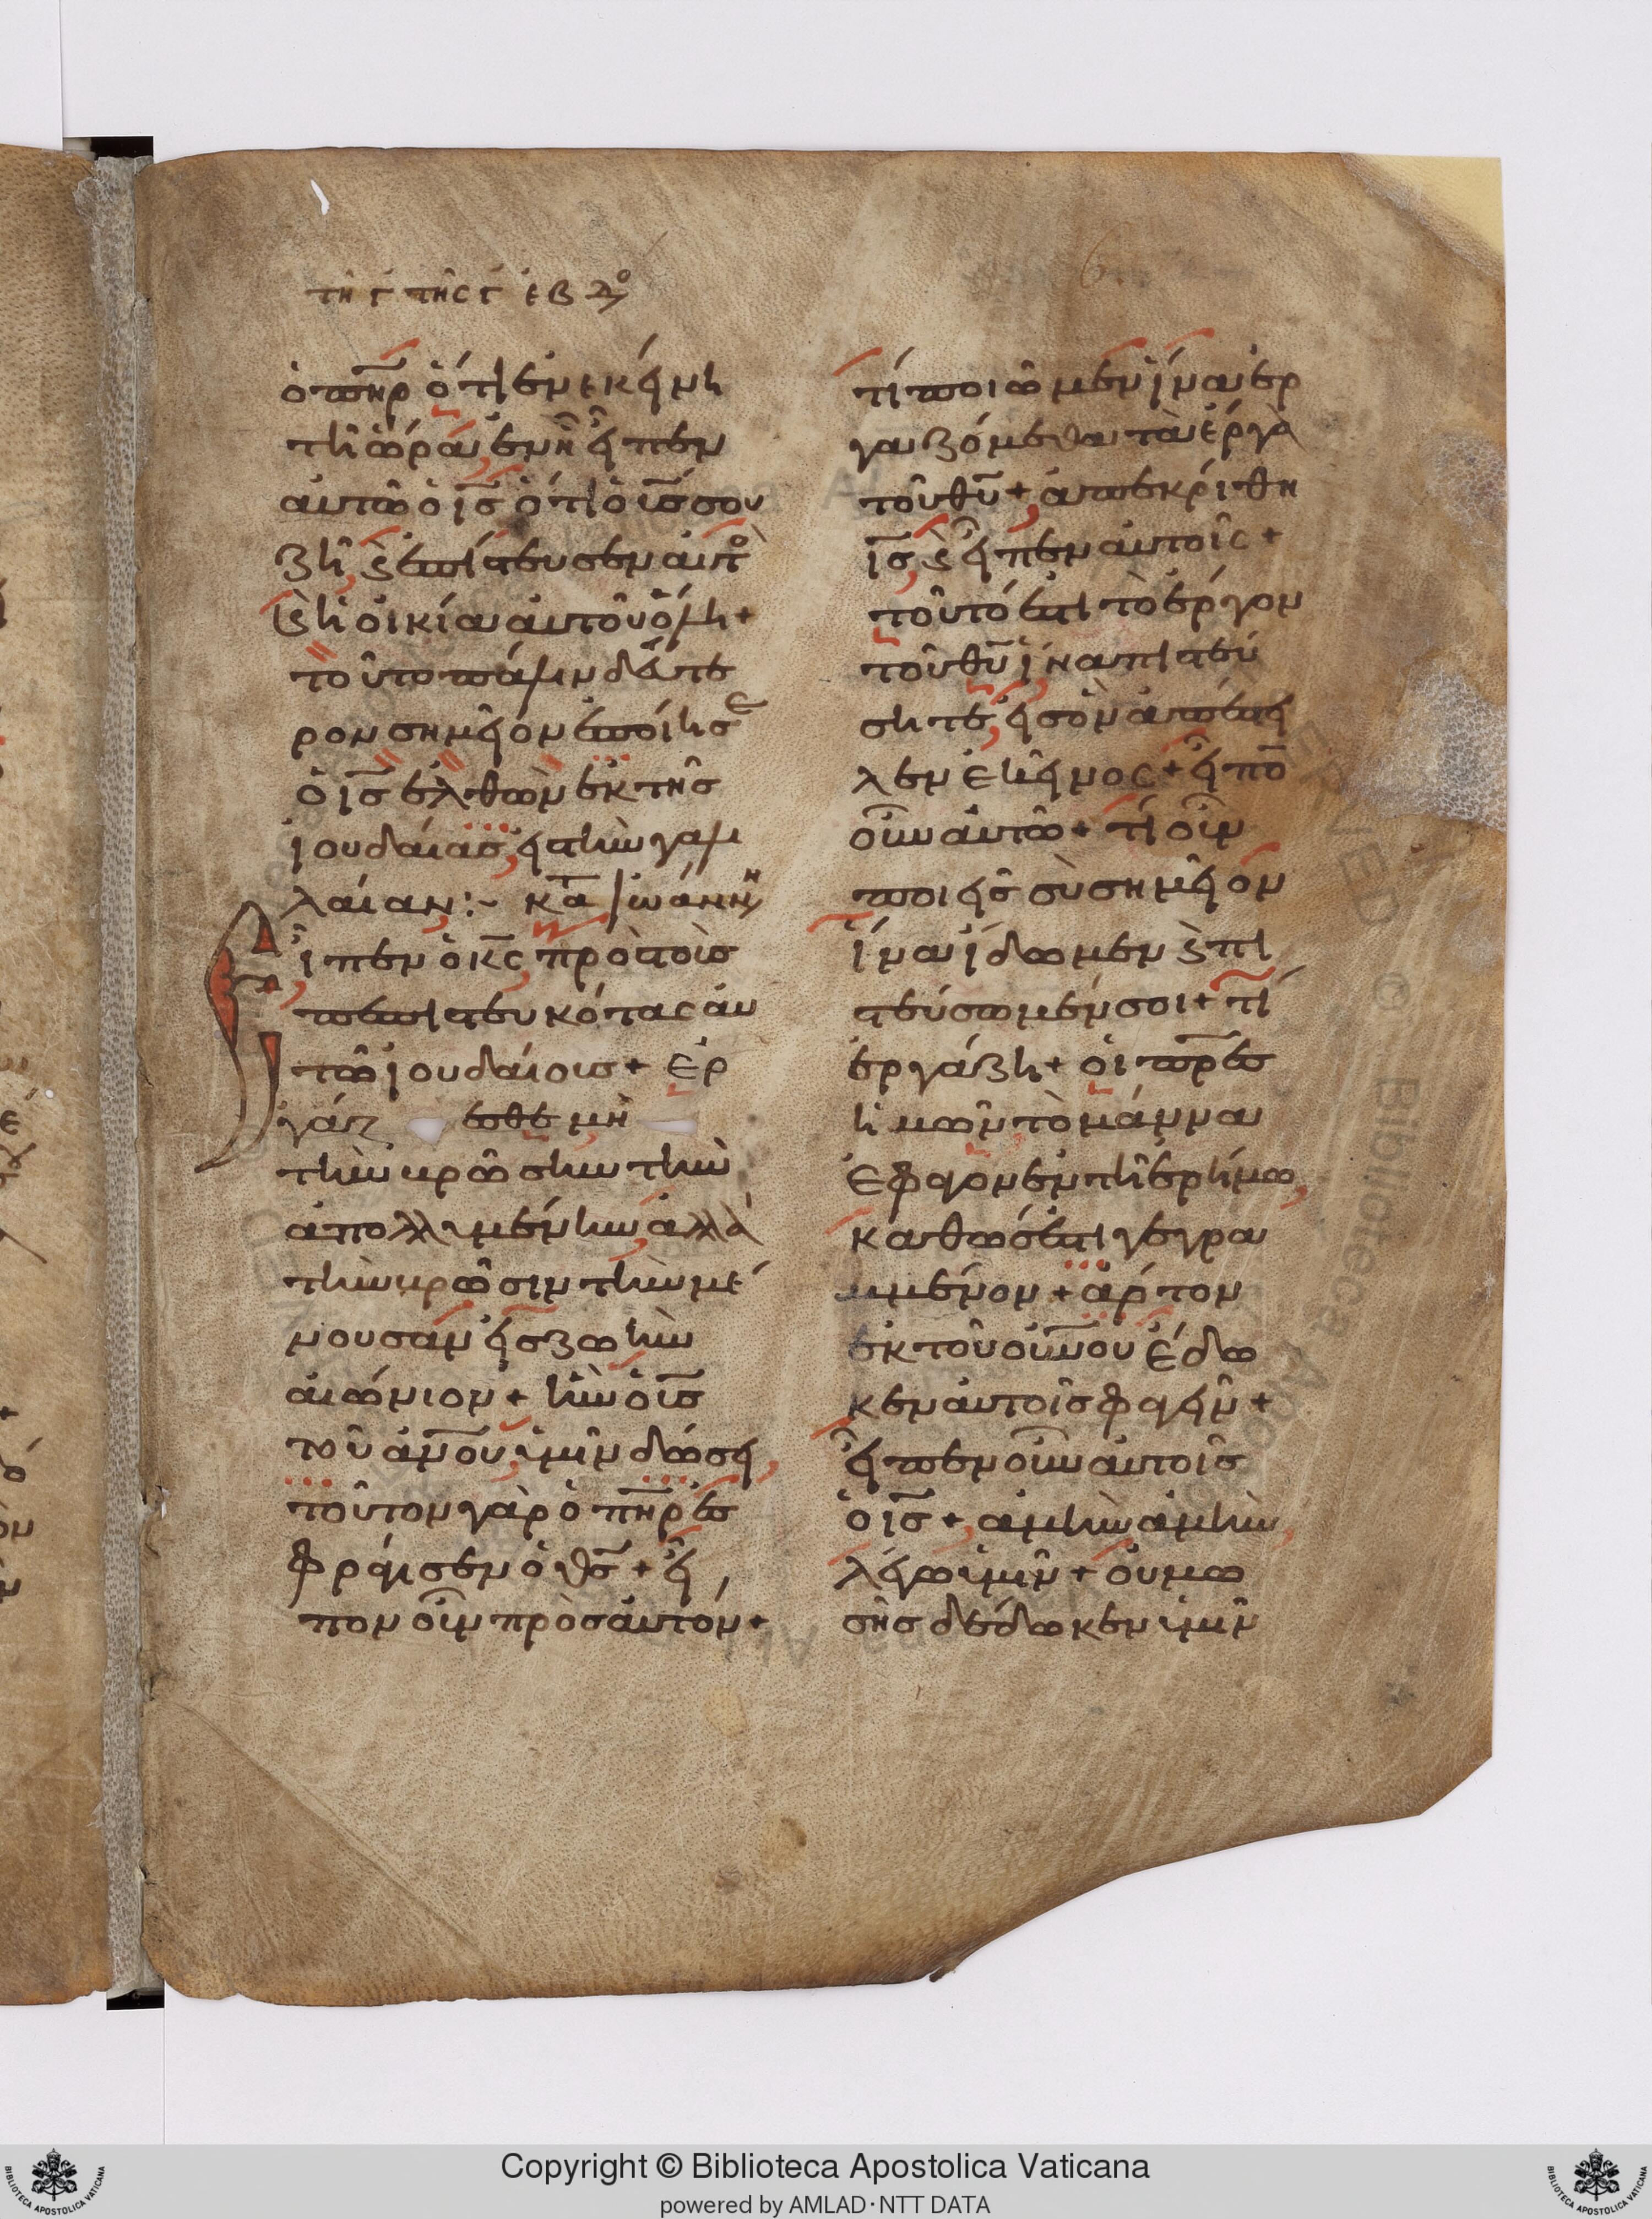 τῆ γ τῆς γ ἑβδο
ὁ πηρ ὅτι ἐν εκείνη
τῆ ὥρα, ἐν ἧ εἶπεν
αὐτῶ ὁ ις ὅτι ὁ υς σου
ζῆ, ϗ ἐπίστευσεν αὐτο
ϗ ἡ οἰκία αὐτοῦ ὅλη +
τοῦτο πάλιν δεύτε
ρον σημεῖον ἐποίησε
ὁ ις ἐλθὼν ἐκ τῆς
ἰουδαίας, εἰς τὴν γαλι
λαίαν :~ κατα ἰωάννην
Εἶπεν ὁ κς, πρὸς τοὺς
πεπιστευκότας αὐ
τῶ ἰουδαίους + ἐρ
γάζεσθε μὴ
τὴν βρῶσιν τὴν
ἀπολλυμένην, ἀλλὰ
τὴν βρῶσιν τὴν μέ
νουσαν εἰς ζωὴν
αἰώνιον + ἣν ὁ υς
τοῦ ανου, ὑμῖν δώσει,
τοῦτον γὰρ ὁ πηρ ἐσ
φράγισεν ὁ θς + εἶ
πον οὖν πρὸς αὐτόν +
τί ποιῶμεν ἵνα ἐρ
γαζόμεθα τὰ ἔργα
τοῦ θυ + ἀπεκρίθη
ις, ϗ εἶπεν αὐτοῖς +
τοῦτό ἐστι τὸ ἔργον
τοῦ θυ ἵνα πιστεύ
σητε, εἰς ὃν ἀπέστει
λεν ἐκεῖνος + εἶπον
οὖν αὐτῶ + τί οὖν
ποιεῖς σὺ σημεῖον
ἵνα ἴδωμεν ϗ πι
στεύσωμέν σοι + τί
ἐργάζη + οἱ πρες
ἡμῶν τὸ μάννα
ἔφαγον ἐν τῆ ἐρήμω,
καθώς ἐστι γεγρα
μμένον + ἄρτον
ἐκ τοῦ ουνου ἔδω
κεν αὐτοῖς φαγεῖν +
εἶπεν οὖν αὐτοῖς
ὁ ις + ἀμὴν ἀμὴν
λέγω ὑμῖν + οὐ μω
σῆς δέδωκεν ὑμῖν
Copyright © Biblioteca Apostolica Vaticana
powered by AMLAD·NTT DATA